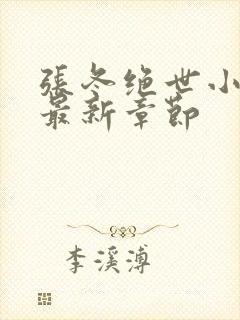 張冬绝世小
最新章节
李溪溥